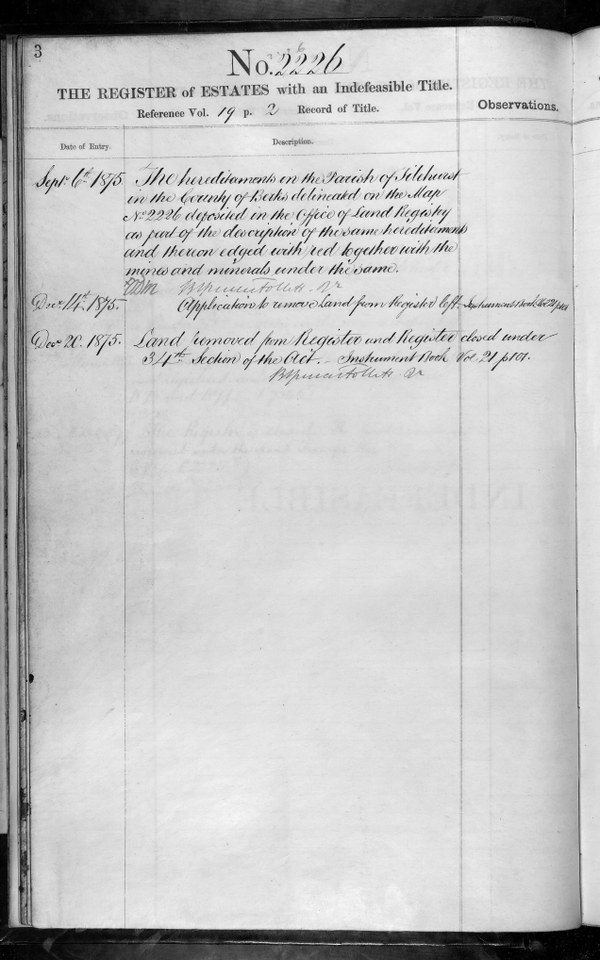 3
No. 2226
THE REGISTER of ESTATES with an Indefeasible Title.
Reference Vol. 19 p. 2 Record of Title.
Observations.
Date of Entry.
Description.
Septr. 6th 1875. The hereditaments in the Parish of Tilehurst
in the County of Berks delineated on the Map
No. 2226 deposited in the Office of Land Registry
as part of the description of the same hereditaments
and thereon edged with red together with the
mines and minerals under the same.
Decr. 14th 1875. Application to remove Land from Register left. Instrument Book Vol 21 p 101
Decr. 20. 1875. Land removed from Register and Register closed under
34th Section of the Act. – Instrument Book Vol 21 p 101.